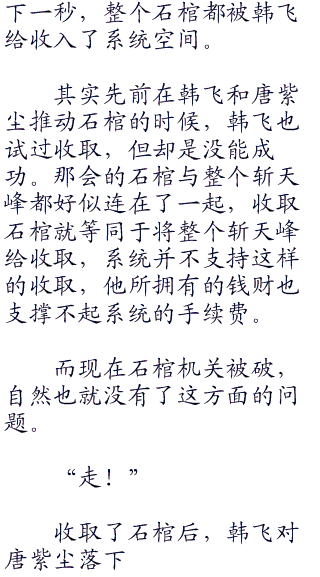 下一秒，整个石棺都被韩飞
给收入了系统空间。
其实先前在韩飞和唐紫
尘推动石棺的时候，韩飞也
试过收取，但却是没能成
功。那会的石棺与整个斩天
峰都好似连在了一起，收取
石棺就等同于将整个斩天峰
给收取，系统并不支持这样
的收取，他所拥有的钱财也
支撑不起系统的手续费。
而现在石棺机关被破，
自然也就没有了这方面的问
题。
“走！”
收取了石棺后，韩飞对
唐紫尘落下